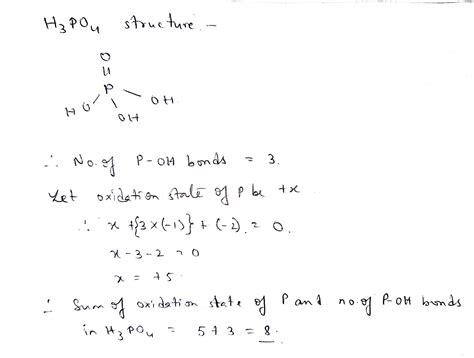 H₃PO₄ structure –
O
||
P
HO OH
OH
∴ No. of P-OH bonds = 3.
Let oxidation state of P be +x
∴ x + {3×(-1)} + (-2) = 0.
x - 3 - 2 = 0
x = +5.
∴ Sum of oxidation state of P and no. of P-OH bonds
in H₃PO₄ = 5 + 3 = 8.